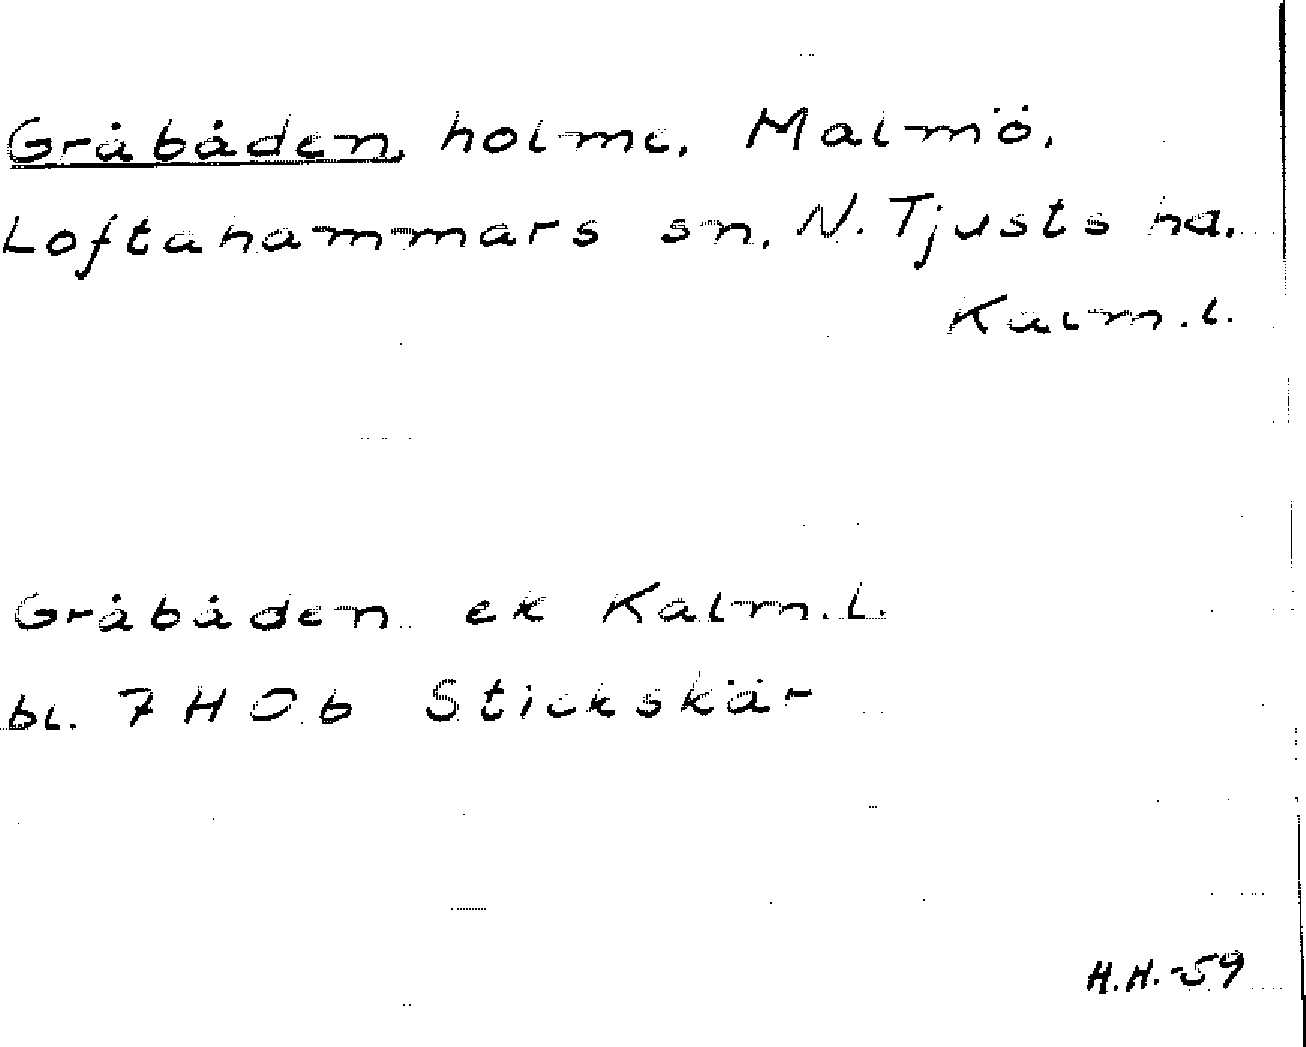 Gråbåden, holme, Malmö,
Loftahammars sn, N. Tjusts hd.
Kalm.l.
Gråbåden ek Kalm.l.
bl. 7 H O b Stickskär
H.H.-59